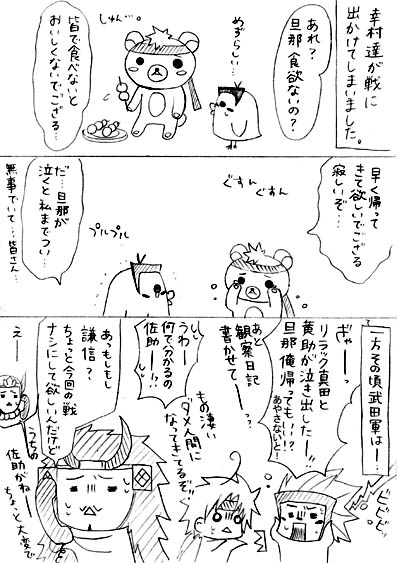 幸村達が戦に
出かけてしまいました。
あれ？
旦那食欲ないの？
めずらしい…
しゅん…。
皆で食べないと
おいしくないでござる…
早く帰って
きて欲しいでござる
寂しいぞ…
ぐすん
ぐすん
だ…旦那が
泣くと私までつい…
プルプル
無事でいて…皆さん…
一方その頃武田軍は―…
ビビビッ
ぎゃーーっ
リラック真田と
黄助が泣き出したー!!
旦那俺帰ってもいい!?
あやさないとー
あと
観察日記
書かせてー…っ？
もの凄い
ダメ人間に
なってきてるぞ!!
うわー
何で分かるの
佐助ー!?
あっもしもし
謙信？
ちょっと今回の戦
ナシにして欲しいんだけど
うちの
佐助がねー
ちょっと大変で
えー